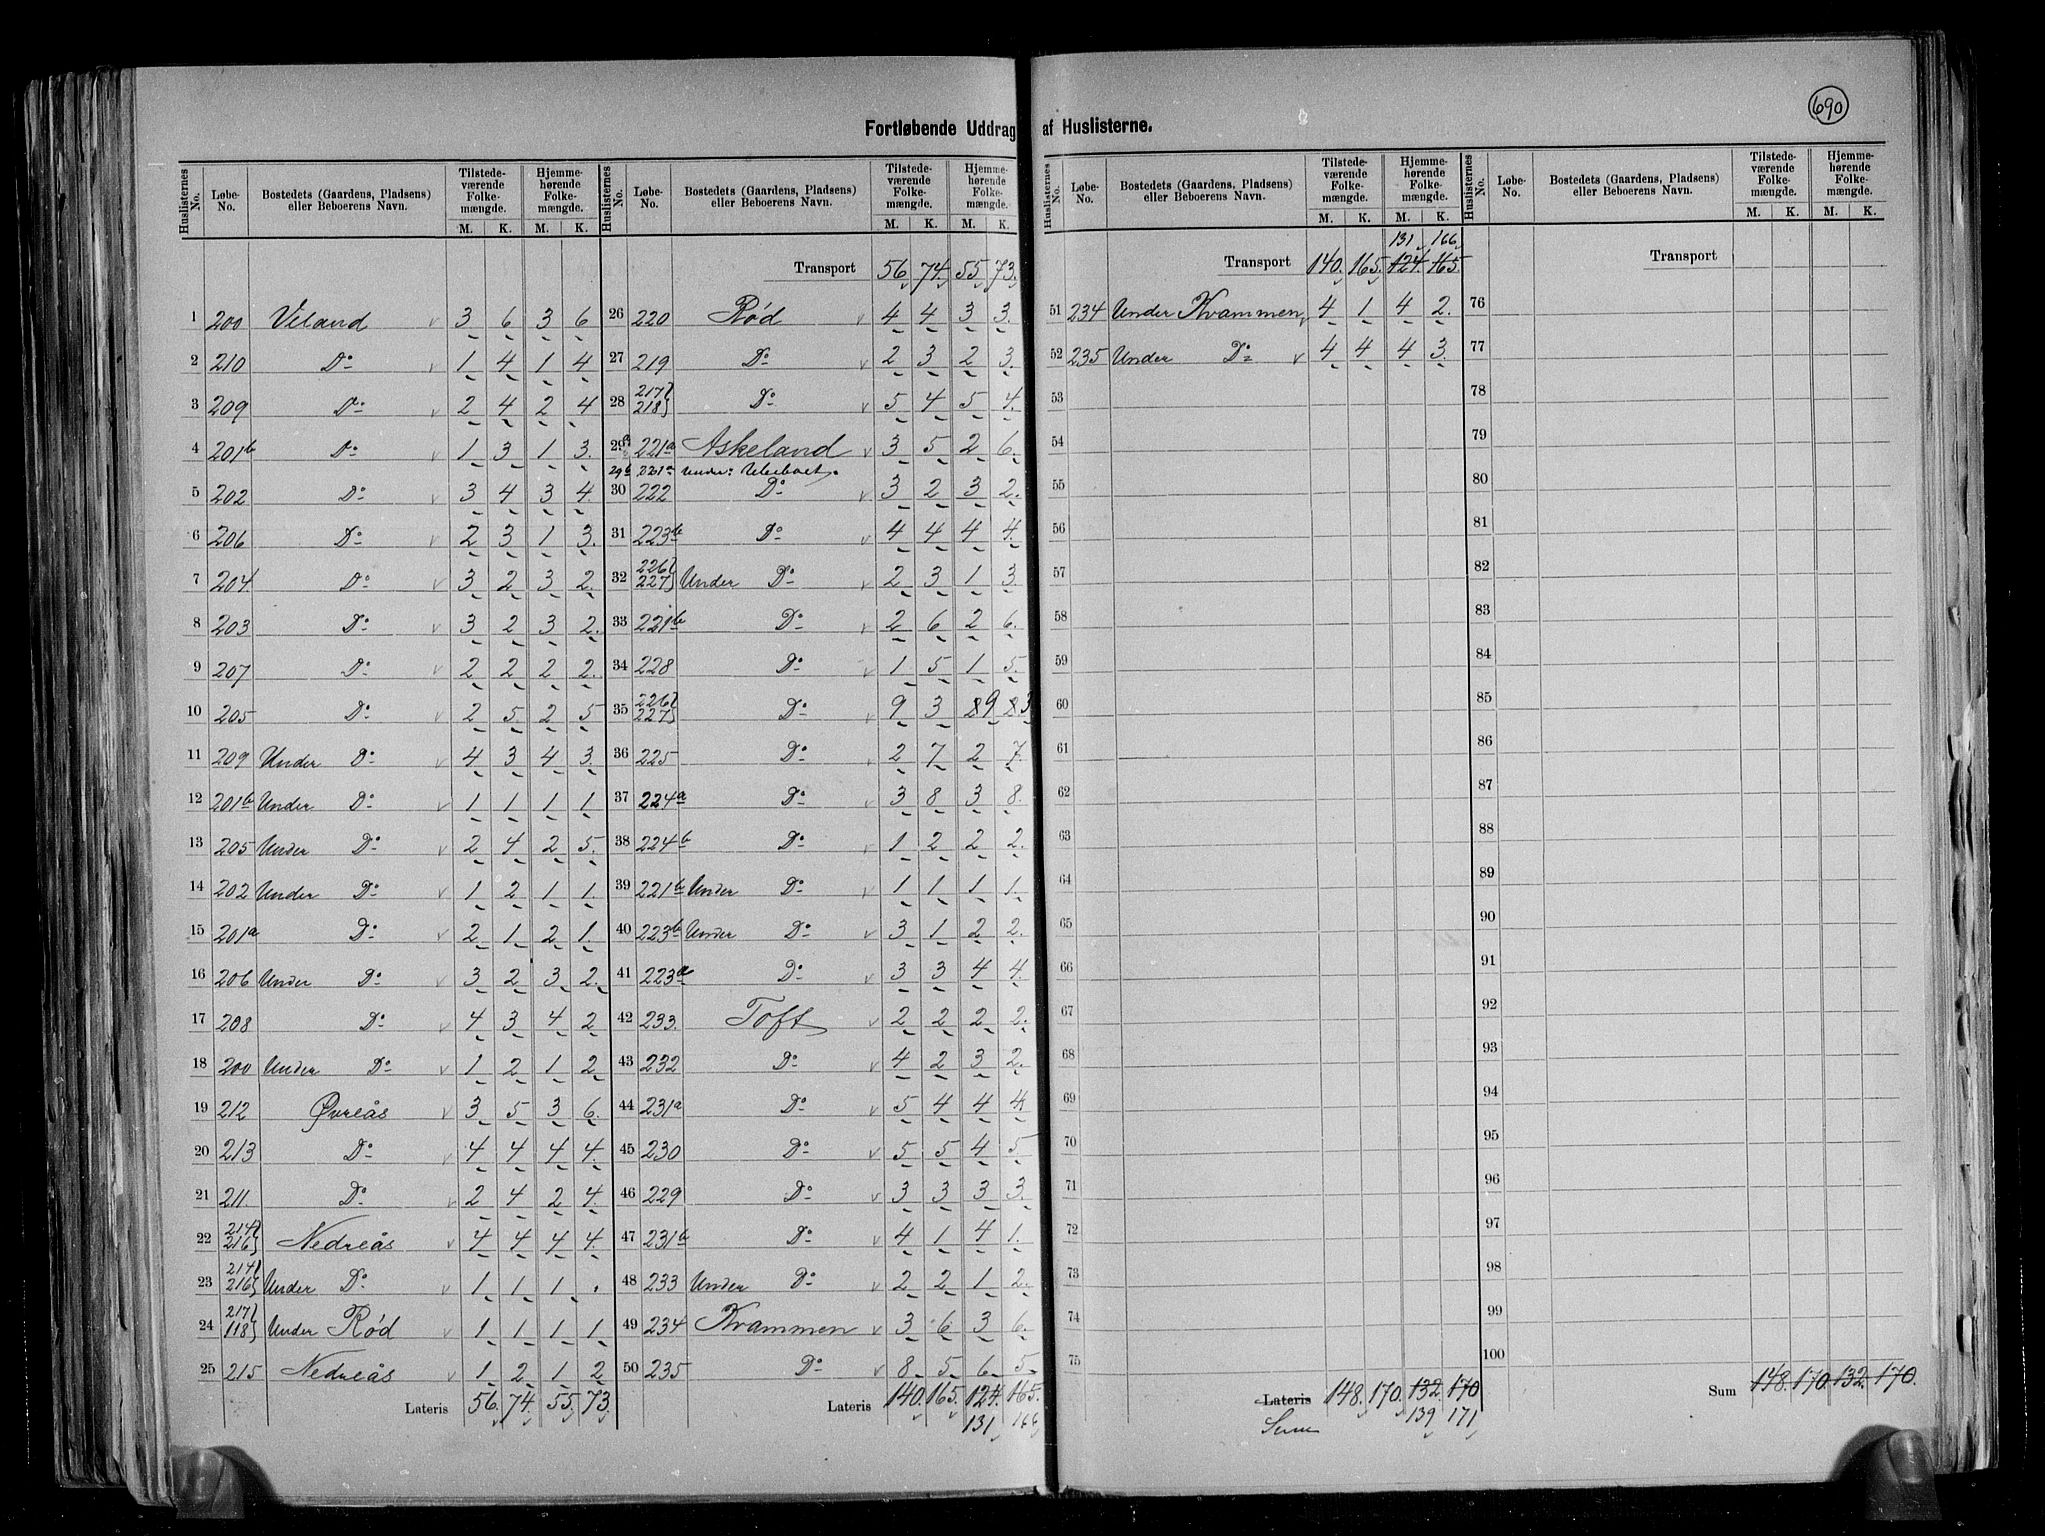 690
Fortløbende Uddrag af Huslisterne.
Huslisternes No. | Løbe-No. | Bostedets (Gaardens, Pladsens) eller Beboerens Navn. | Tilstedeværende Folkemængde. M. K. | Hjemmehørende Folkemængde. M. K.
1 200 Viland v 3 6 3 6
2 210 Do v 1 4 1 4
3 209 Do v 2 4 2 4
4 201b Do v 1 3 1 3.
5 202 Do v 3 4 3 4.
6 206 Do v 2 3 1 3.
7 204 Do v 3 2 3 2.
8 203 Do v 3 2 3 2.
9 207 Do v 2 2 2 2.
10 205 Do v 2 5 2 5
11 209 Under Do v 4 3 4 3.
12 201b Under Do v 1 1 1 1
13 205 Under Do v 2 4 2 5.
14 202 Under Do v 1 2 1 1
15 201a Do v 2 1 2 1.
16 206 Under Do v 3 2 3 2.
17 208 Do v 4 3 4 2
18 200 Under Do v 1 2 1 2
19 212 Øvreås v 3 5 3 6.
20 213 Do v 4 4 4 4
21 211 Do v 2 4 2 4.
22 214 216 Nedreås v 4 4 4 4.
23 214 216 Under Do v 1 1 1 .
24 217 118 Under Rød v 1 1 1 1
25 215 Nedreås v 1 2 1 2
Lateris 56. 74. 55. 73.
Huslisternes No. | Løbe-No. | Bostedets (Gaardens, Pladsens) eller Beboerens Navn. | Tilstedeværende Folkemængde. M. K. | Hjemmehørende Folkemængde. M. K.
Transport 56 74. 55 73.
26 220 Rød v 4 4 3 3.
27 219 Do v 2 3 2 3.
28 217 218 Do v 5 4 5 4.
29a 221a Askeland v 3 5 2 6.
29b 221a Under:
30 222 Do v 3 2 3 2.
31 223b Do v 4 4 4 4.
32 226 227 Under Do v 2 3 1 3.
33 221b Do v 2 6 2 6.
34 228 Do v 1 5 1 5.
35 226 227 Do v 9 3 8 9 8 3
36 225 Do v 2 7 2 7.
37 224a Do v 3 8 3 8.
38 224b Do v 1 2 2 2.
39 221b Under Do v 1 1 1 1.
40 223b Under Do v 3 1 2 2.
41 223a Do v 3 3 4 4.
42 233. Toft v 2 2 2 2.
43 232 Do v 4 2 3 2.
44 231a Do v 5 4 4 4
45 230 Do v 5 5 4 5
46 229 Do v 3 3 3 3.
47 231b Do v 4 1 4 1.
48 233 Under Do v 2 2 1 2.
49 234 Kvammen v 3 6 3 6.
50 235 Do v 8 5 6 5
Lateris 140. 165. 124. 165.
131 166
Huslisternes No. | Løbe-No. | Bostedets (Gaardens, Pladsens) eller Beboerens Navn. | Tilstedeværende Folkemængde. M. K. | Hjemmehørende Folkemængde. M. K.
131 166
Transport 140. 165. 124. 165.
51 234 Under Kvammen v 4 1 4 2.
52 235 Under Do v 4 4 4 3.
53
54
55
56
57
58
59
60
61
62
63
64
65
66
67
68
69
70
71
72
73
74
75
Lateris 148. 170. 132. 170
Sum 139 171
Huslisternes No. | Løbe-No. | Bostedets (Gaardens, Pladsens) eller Beboerens Navn. | Tilstedeværende Folkemængde. M. K. | Hjemmehørende Folkemængde. M. K.
Transport
76
77
78
79
80
81
82
83
84
85
86
87
88
89
90
91
92
93
94
95
96
97
98
99
100
Sum 148. 170. 132. 170.